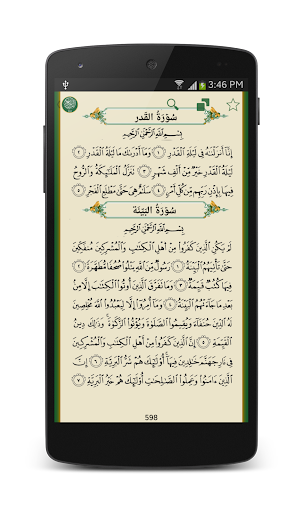 3:46 PM
سُوْرَةُ القَدر
بِسْمِ اللَّهِ الرَّحْمَٰنِ الرَّحِيمِ
إِنَّا أَنزَلْنَٰهُ فِى لَيْلَةِ ٱلْقَدْرِ ١ وَمَآ أَدْرَىٰكَ مَا لَيْلَةُ ٱلْقَدْرِ ٢
لَيْلَةُ ٱلْقَدْرِ خَيْرٌ مِّنْ أَلْفِ شَهْرٍ ٣ تَنَزَّلُ ٱلْمَلَٰٓئِكَةُ وَٱلرُّوحُ
فِيهَا بِإِذْنِ رَبِّهِم مِّن كُلِّ أَمْرٍ ٤ سَلَٰمٌ هِىَ حَتَّىٰ مَطْلَعِ ٱلْفَجْرِ ٥
سُوْرَةُ البَيّنَة
بِسْمِ اللَّهِ الرَّحْمَٰنِ الرَّحِيمِ
لَمْ يَكُنِ ٱلَّذِينَ كَفَرُوا۟ مِنْ أَهْلِ ٱلْكِتَٰبِ وَٱلْمُشْرِكِينَ مُنفَكِّينَ
حَتَّىٰ تَأْتِيَهُمُ ٱلْبَيِّنَةُ ١ رَسُولٌ مِّنَ ٱللَّهِ يَتْلُوا۟ صُحُفًا مُّطَهَّرَةً ٢
فِيهَا كُتُبٌ قَيِّمَةٌ ٣ وَمَا تَفَرَّقَ ٱلَّذِينَ أُوتُوا۟ ٱلْكِتَٰبَ إِلَّا مِنۢ
بَعْدِ مَا جَآءَتْهُمُ ٱلْبَيِّنَةُ ٤ وَمَآ أُمِرُوٓا۟ إِلَّا لِيَعْبُدُوا۟ ٱللَّهَ مُخْلِصِينَ
لَهُ ٱلدِّينَ حُنَفَآءَ وَيُقِيمُوا۟ ٱلصَّلَوٰةَ وَيُؤْتُوا۟ ٱلزَّكَوٰةَ وَذَٰلِكَ دِينُ
ٱلْقَيِّمَةِ ٥ إِنَّ ٱلَّذِينَ كَفَرُوا۟ مِنْ أَهْلِ ٱلْكِتَٰبِ وَٱلْمُشْرِكِينَ
فِى نَارِ جَهَنَّمَ خَٰلِدِينَ فِيهَآ أُو۟لَٰٓئِكَ هُمْ شَرُّ ٱلْبَرِيَّةِ ٦ إِنَّ
ٱلَّذِينَ ءَامَنُوا۟ وَعَمِلُوا۟ ٱلصَّٰلِحَٰتِ أُو۟لَٰٓئِكَ هُمْ خَيْرُ ٱلْبَرِيَّةِ ٧
598